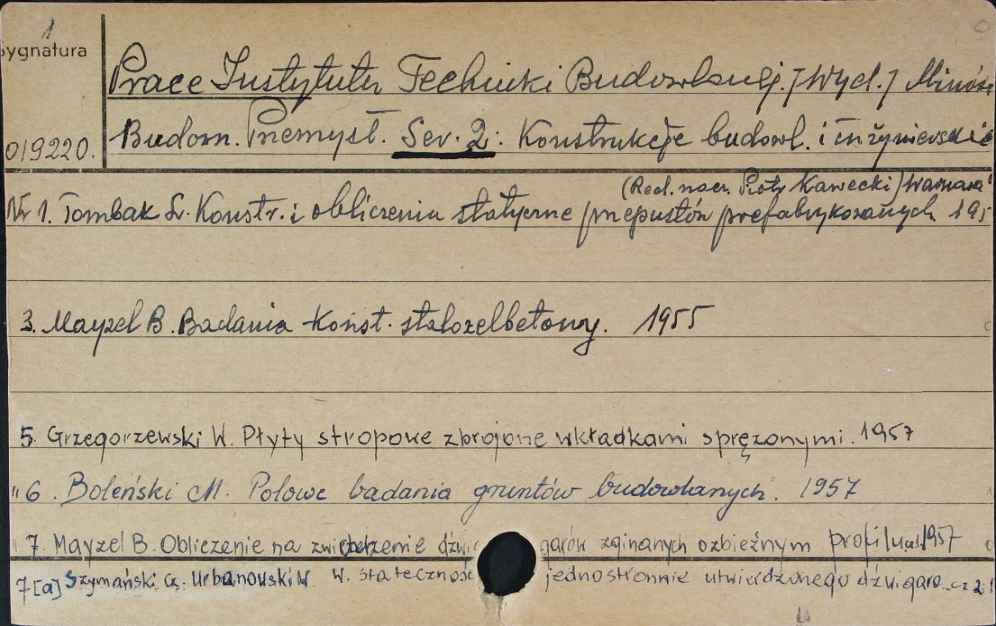 1
Sygnatura
Prace Instytutu Techniki Budowlanej. /Wyd./
019220. Budown. Przemysł. Ser. 2: Konstrukcje budowl. i inżynierskie
(Red. nacz. Piotr Kawecki) Warszawa
Nr 1. Tombak L. Konstr. i obliczenia statyczne przepustów prefabrykowanych 195
3. Mayzel B. Badania konst. stalozelbetowy. 1955
5. Grzegorzewski W. Płyty stropowe zbrojone wkładkami sprężonymi. 1957
" 6. Boleński M. Polowe badania gruntów budowlanych. 1957
" 7. Mayzel B. Obliczenie na garów zginanych ozbieżnym profilu 1957
7[a] Szymański Cz. Urbanowski W. W. stateczność jednostronnie utwierdzonego dźwigara cz 2